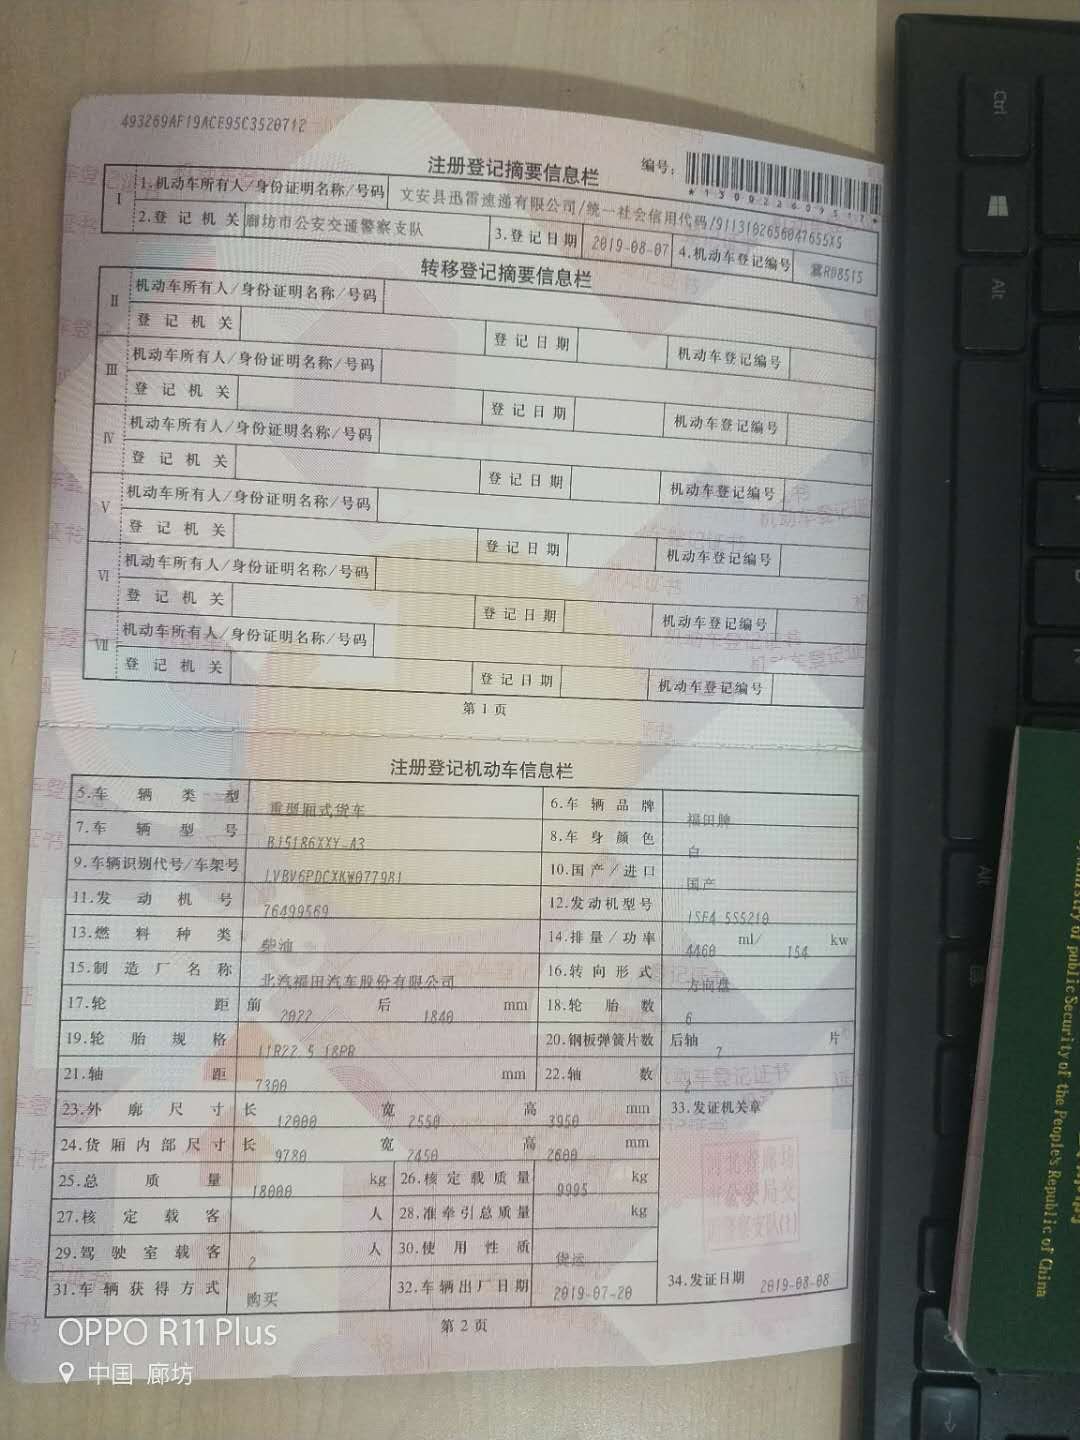 493269AF19ACE95C3520712
注册登记摘要信息栏
编号:
*130022609517*
Ⅰ 1.机动车所有人/身份证明名称/号码 文安县迅雷速递有限公司/统一社会信用代码/9113102656047655XS
2.登记机关 廊坊市公安交通警察支队 3.登记日期 2019-08-07 4.机动车登记编号 冀RD8515
转移登记摘要信息栏
Ⅱ 机动车所有人/身份证明名称/号码
登记机关 登记日期 机动车登记编号
Ⅲ 机动车所有人/身份证明名称/号码
登记机关 登记日期 机动车登记编号
Ⅳ 机动车所有人/身份证明名称/号码
登记机关 登记日期 机动车登记编号
Ⅴ 机动车所有人/身份证明名称/号码
登记机关 登记日期 机动车登记编号
Ⅵ 机动车所有人/身份证明名称/号码
登记机关 登记日期 机动车登记编号
Ⅶ 机动车所有人/身份证明名称/号码
登记机关 登记日期 机动车登记编号
第1页
注册登记机动车信息栏
5.车辆类型 重型厢式货车 6.车辆品牌 福田牌
7.车辆型号 BJ5186XXY-A3 8.车身颜色 白
9.车辆识别代号/车架号 LVBV6PDCXKW077981 10.国产/进口 国产
11.发动机号 76499569 12.发动机型号 ISF4.5S5210
13.燃料种类 柴油 14.排量/功率 4460 ml/ 154 kw
15.制造厂名称 北汽福田汽车股份有限公司 16.转向形式 方向盘
17.轮距 前 2022 后 1840 mm 18.轮胎数 6
19.轮胎规格 11R22.5 18PR 20.钢板弹簧片数 后轴 7 片
21.轴距 7300 mm 22.轴数 2
23.外廓尺寸 长 12000 宽 2550 高 3950 mm 33.发证机关章
24.货厢内部尺寸 长 9780 宽 2450 高 2600 mm
25.总质量 18000 kg 26.核定载质量 9995 kg
27.核定载客 -- 人 28.准牵引总质量 kg
29.驾驶室载客 2 人 30.使用性质 货运
31.车辆获得方式 购买 32.车辆出厂日期 2019-07-20 34.发证日期 2019-08-08
第2页
OPPO R11 Plus
中国 廊坊
Ctrl
Alt
Alt
Ministry of public Security of the People's Republic of China